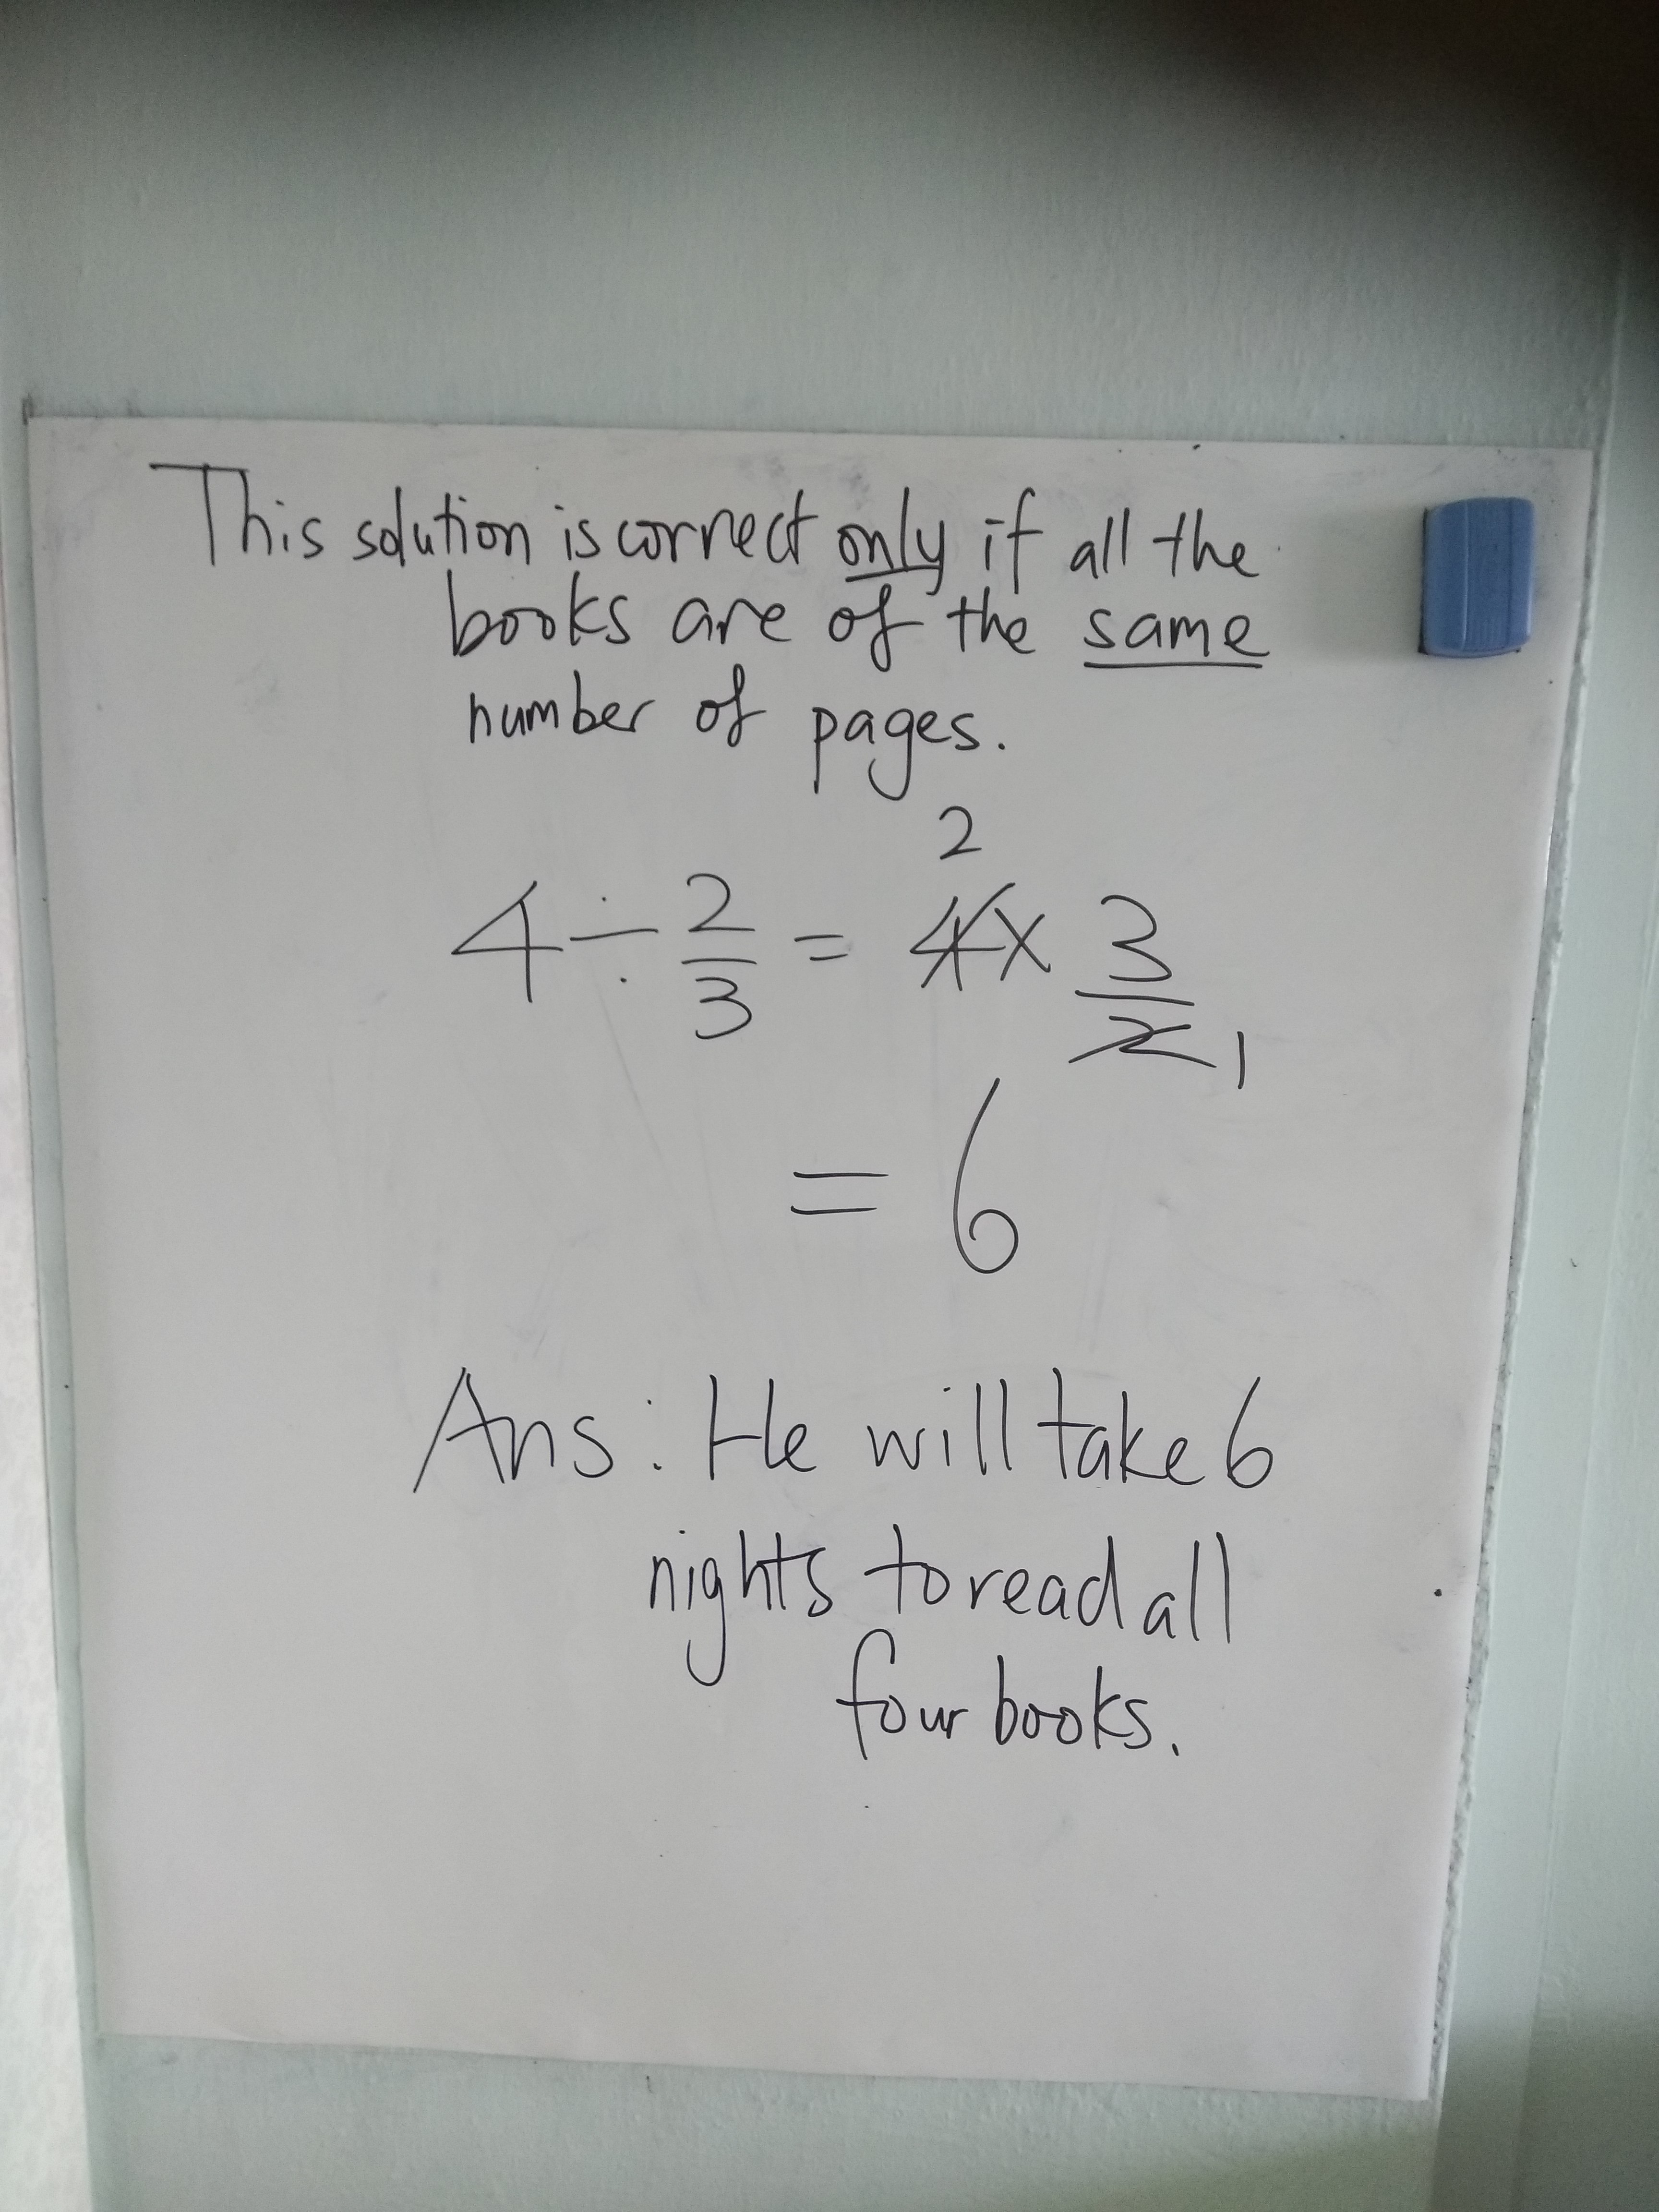 This solution is correct only if all the
books are of the same
number of pages.
4 ÷ 2/3 = 4 2 × 3/2 1
= 6
Ans : He will take 6
nights to read all
four books.